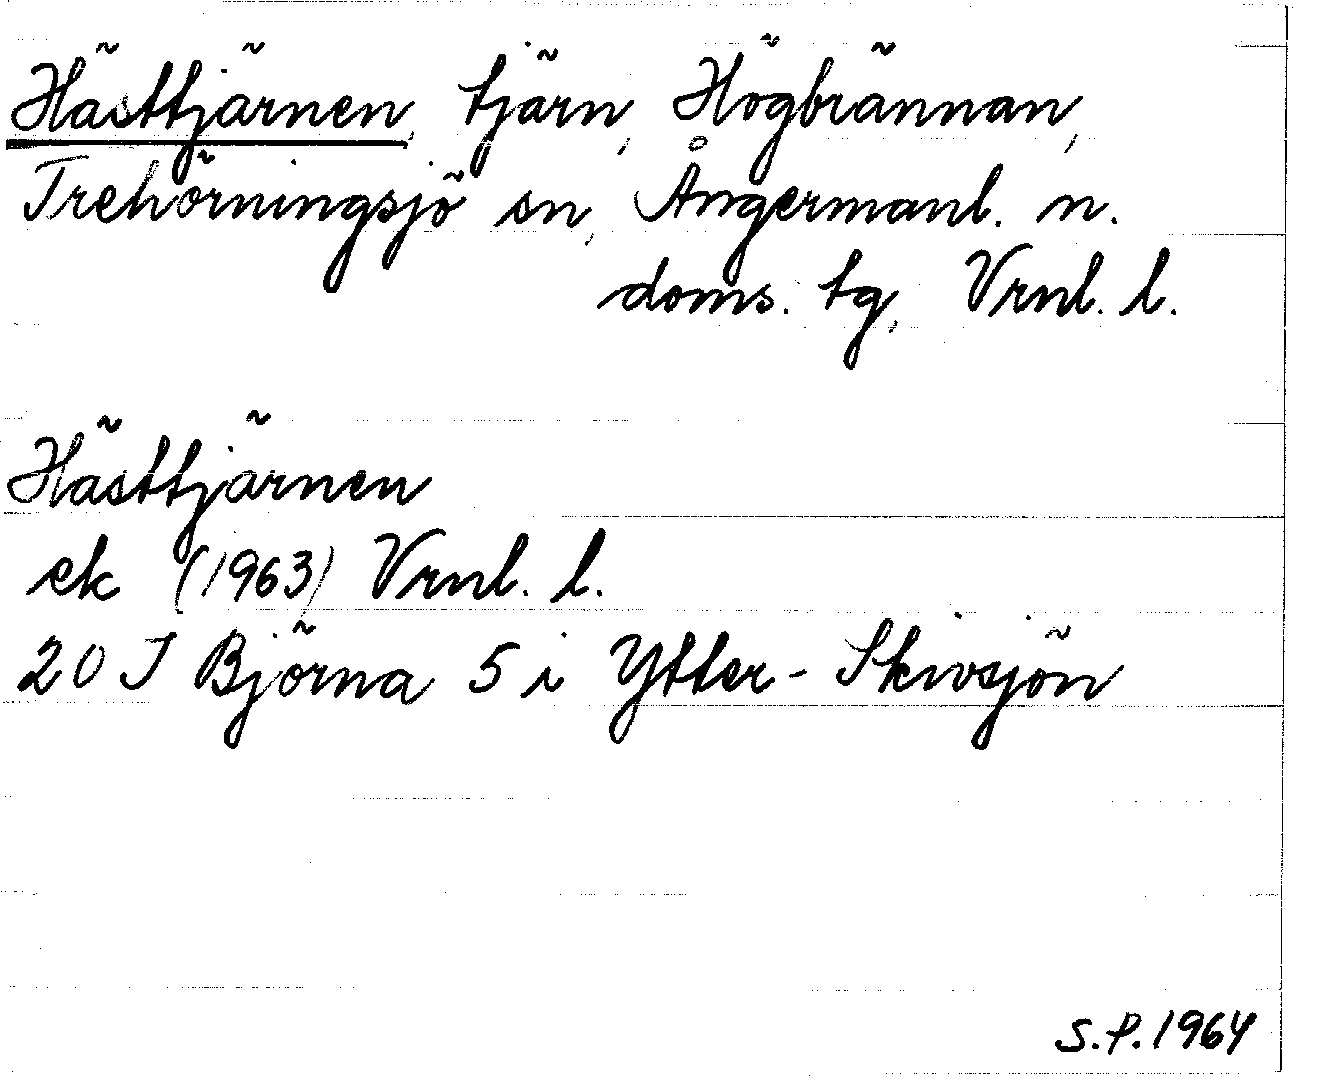 Hästtjärnen, tjärn, Högbrännan,
Trehörningsjö sn, Ångermanl. n.
doms. tg, Vrnl. l.
Hästtjärnen
ek (1963) Vrnl. l.
20 J Björna 5 i Ytter-Skivsjön
S.P. 1964